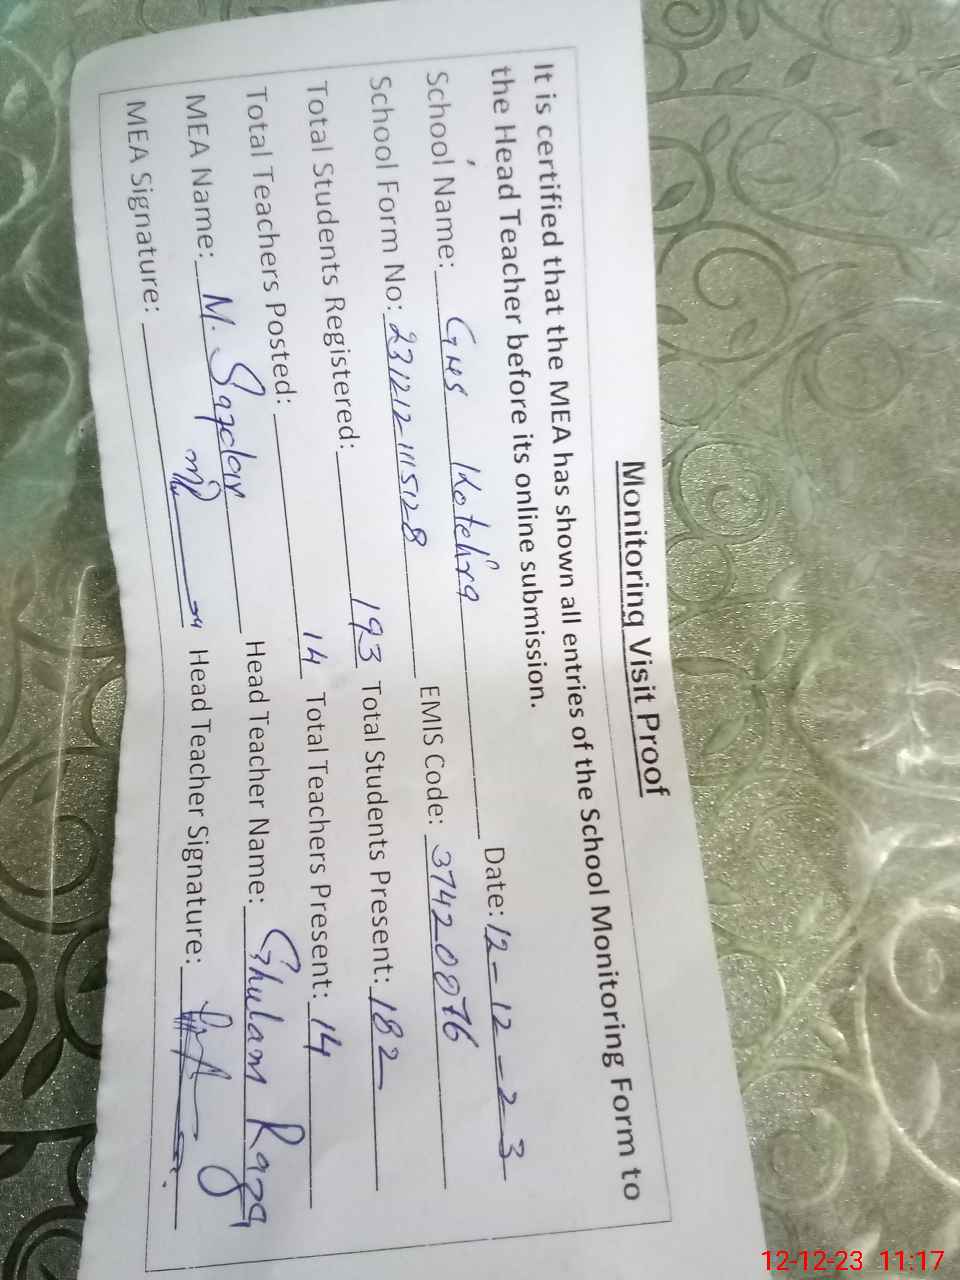 Monitoring Visit Proof
It is certified that the MEA has shown all entries of the School Monitoring Form to
the Head Teacher before its online submission.
School Name: GHS Kotehra Date: 12-12-23
School Form No: 231212-1115128 EMIS Code: 37420076
Total Students Registered: 193 Total Students Present: 182
Total Teachers Posted: 14 Total Teachers Present: 14
MEA Name: M. Safdar Head Teacher Name: Ghulam Raza
MEA Signature: Head Teacher Signature:
12-12-23 11:17